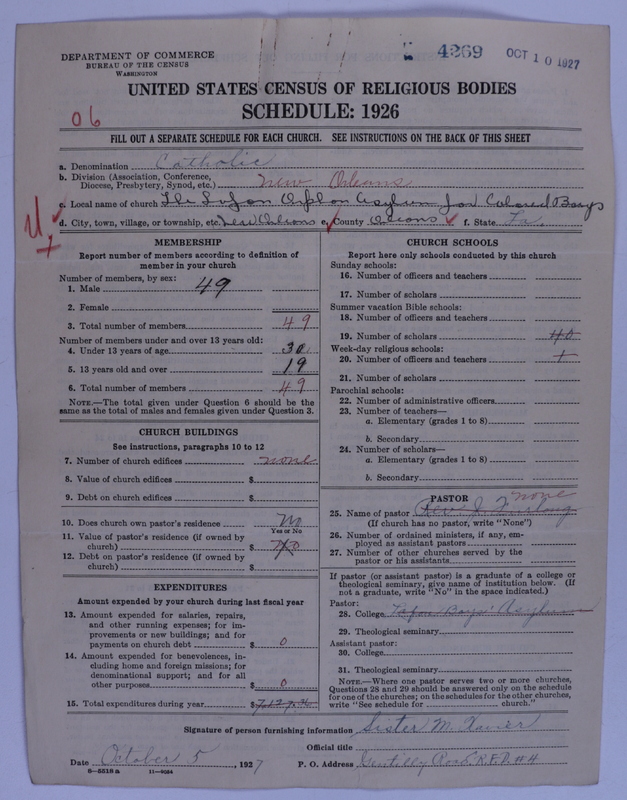 4269 OCT 10 1927
DEPARTMENT OF COMMERCE
BUREAU OF THE CENSUS
WASHINGTON
UNITED STATES CENSUS OF RELIGIOUS BODIES
SCHEDULE: 1926
06
FILL OUT A SEPARATE SCHEDULE FOR EACH CHURCH. SEE INSTRUCTIONS ON THE BACK OF THIS SHEET
a. Denomination Catholic
b. Division (Association, Conference,
Diocese, Presbytery, Synod, etc.) New Orleans
c. Local name of church The Lafon Orphan Asylum for Colored Boys
d. City, town, village, or township, etc. New Orleans e. County Orleans f. State La.
MEMBERSHIP
Report number of members according to definition of
member in your church
Number of members, by sex:
1. Male 49
2. Female
3. Total number of members 49
Number of members under and over 13 years old:
4. Under 13 years of age 30
5. 13 years old and over 19
6. Total number of members 49
NOTE.—The total given under Question 6 should be the
same as the total of males and females given under Question 3.
CHURCH BUILDINGS
See instructions, paragraphs 10 to 12
7. Number of church edifices none
8. Value of church edifices $
9. Debt on church edifices $
10. Does church own pastor's residence No
Yes or No
11. Value of pastor's residence (if owned by
church) $ no
12. Debt on pastor's residence (if owned by
church) $
EXPENDITURES
Amount expended by your church during last fiscal year
13. Amount expended for salaries, repairs,
and other running expenses; for im-
provements or new buildings; and for
payments on church debt $ 0
14. Amount expended for benevolences, in-
cluding home and foreign missions; for
denominational support; and for all
other purposes $ 0
15. Total expenditures during year $
CHURCH SCHOOLS
Report here only schools conducted by this church
Sunday schools:
16. Number of officers and teachers
17. Number of scholars
Summer vacation Bible schools:
18. Number of officers and teachers
19. Number of scholars 40
Week-day religious schools:
20. Number of officers and teachers 1
21. Number of scholars
Parochial schools:
22. Number of administrative officers
23. Number of teachers—
a. Elementary (grades 1 to 8)
b. Secondary
24. Number of scholars—
a. Elementary (grades 1 to 8)
b. Secondary
PASTOR none
25. Name of pastor Rev.
(If church has no pastor, write "None")
26. Number of ordained ministers, if any, em-
ployed as assistant pastors
27. Number of other churches served by the
pastor or his assistants
If pastor (or assistant pastor) is a graduate of a college or
theological seminary, give name of institution below. (If
not a graduate, write "No" in the space indicated.)
Pastor:
28. College Lafon Boys' Asylum
29. Theological seminary
Assistant pastor:
30. College
31. Theological seminary
NOTE.—Where one pastor serves two or more churches,
Questions 28 and 29 should be answered only on the schedule
for one of the churches; on the schedules for the other churches,
write "See schedule for church."
Signature of person furnishing information Sister M. Xavier
Official title
Date October 5, 1927 P. O. Address Gentilly Road R.F.D. #4
6—5518a 11—9034